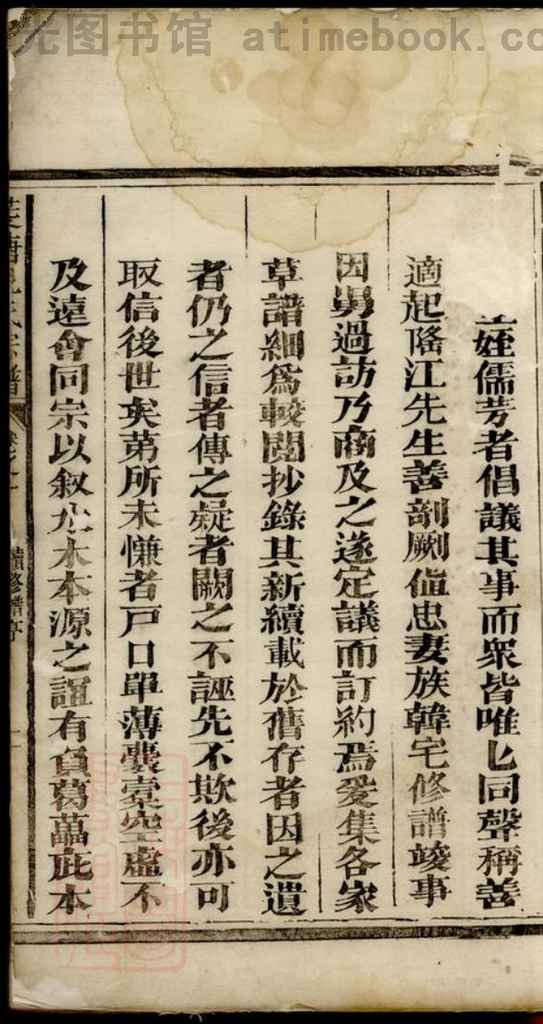 光图书馆 atimebook.co
姪儒芳者倡議其事而衆皆唯匕同聲稱善
適起隲江先生善剖劂値忠妻族韓宅修譜竣事
因舅過訪乃商及之遂定議而訂約焉爰集各家
草譜細爲較閱抄錄其新續載於舊存者因之遺
者仍之信者傳之疑者闕之不誣先不欺後亦可
取信後世矣第所未慊者戸口單薄囊槖空虛不
及遠會同宗以敘水木本源之誼有負葛藟庇本
氏宗譜 續修譜序